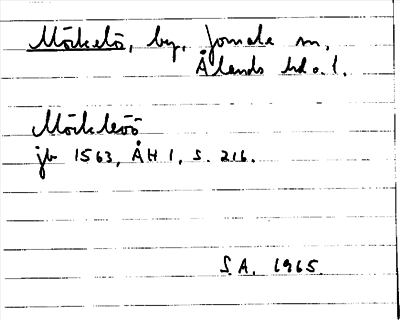 Mörkelö, by, Jomala sn,
Ålands hd o. l.
Mörkleöö
jb 1563, ÅH 1, s. 216.
S.A. 1965.